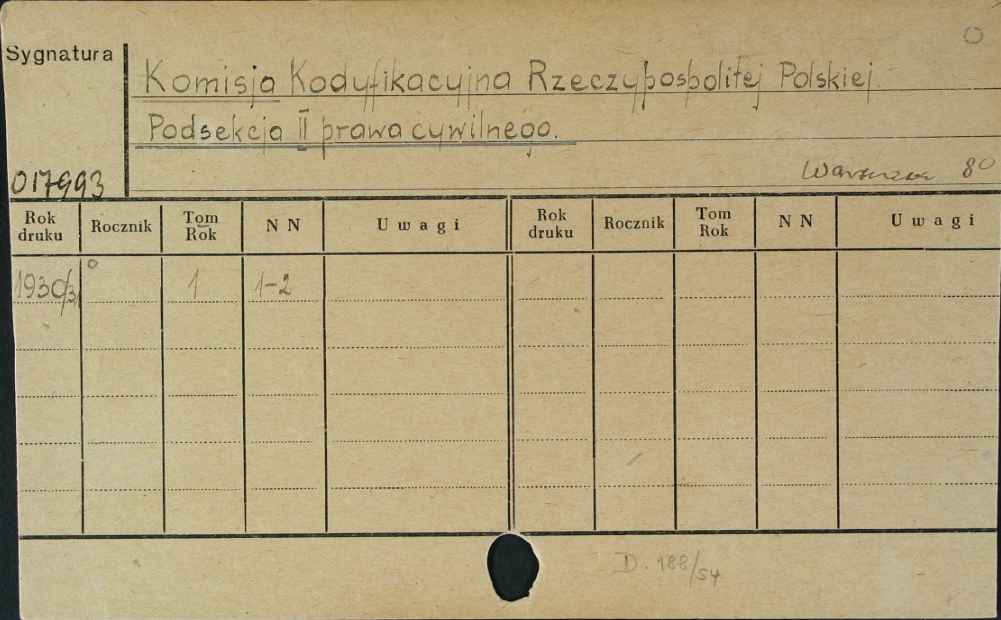 Sygnatura
Komisja Kodyfikacyjna Rzeczypospolitej Polskiej.
Podsekcja II prawa cywilnego.
Warszawa 8°
017993
Rok druku Rocznik Tom Rok N N Uwagi Rok druku Rocznik Tom Rok N N Uwagi
1930/3 1 1-2
D. 188/54